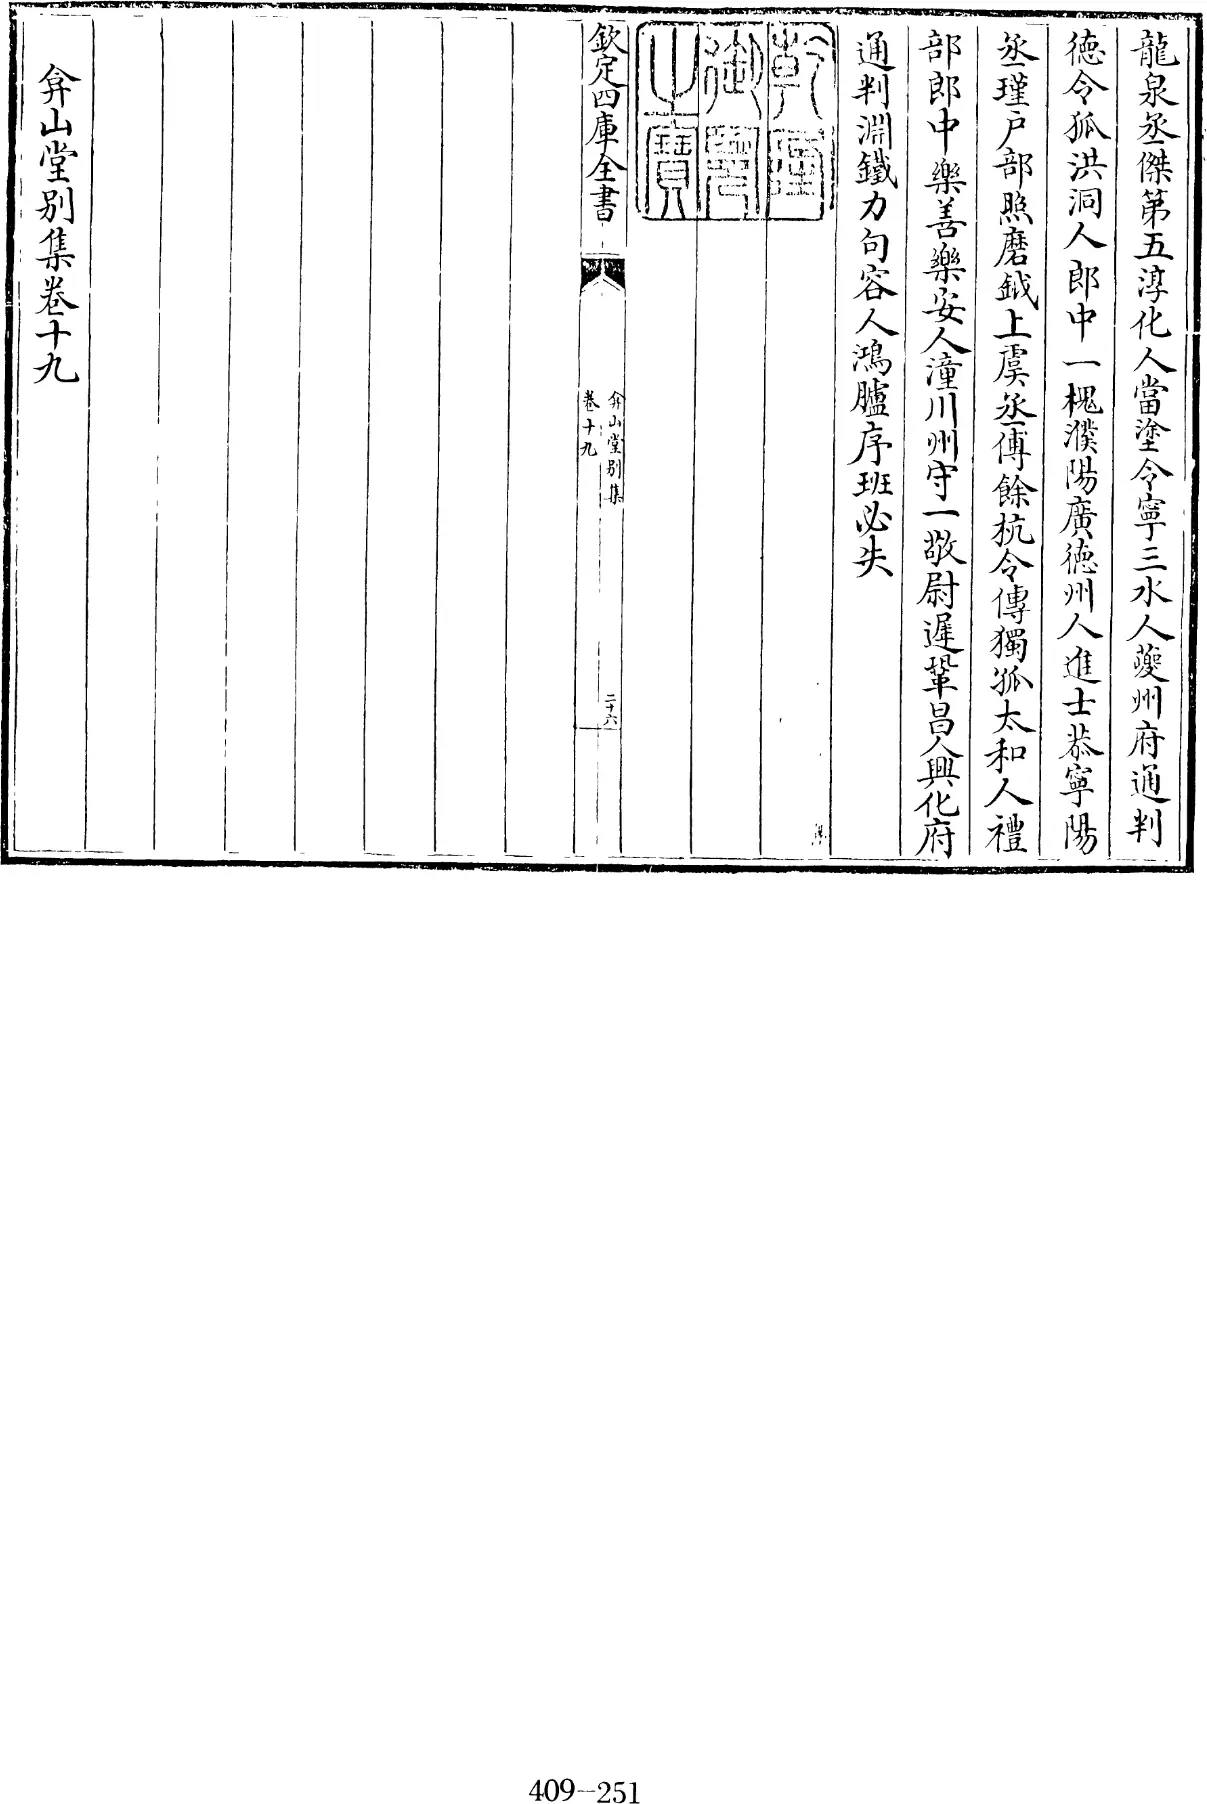 龍泉丞傑第五淳化人當塗令寧三水人夔州府通判
德令狐洪洞人郎中一槐濮陽廣德州人進士恭寧陽
丞瑾戶部照磨鉞上虞丞傅餘杭令傳獨孤太和人禮
部郎中樂善樂安人潼川州守一敬尉遲鞏昌人興化府
通判淵鐵力句容人鴻臚序班必失
乾隆
御覽
之寶
欽定四庫全書
弇山堂别集
卷十九
二十六
弇山堂别集卷十九
409-251